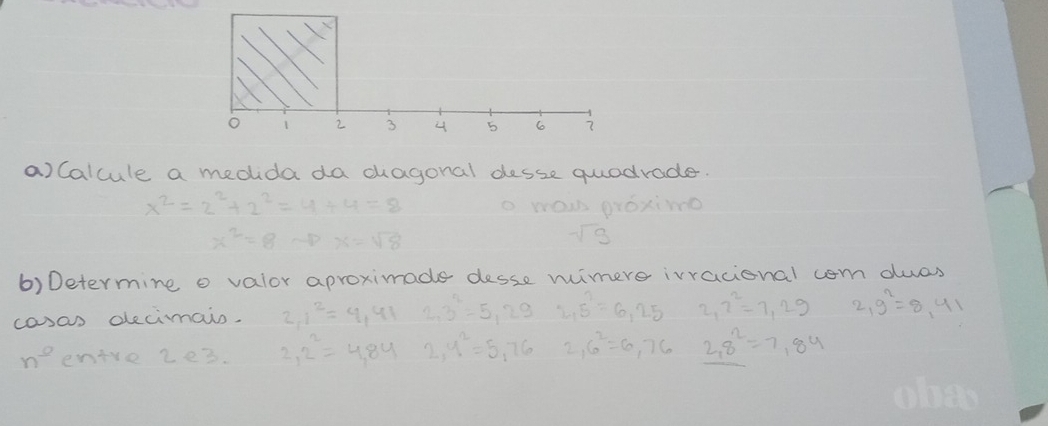 0 1 2 3 4 5 6 7
a) Calcule a medida da diagonal desse quadrado.
x² = 2² + 2² = 4 + 4 = 8 o mais próximo
x² = 8 → x = √8 √9
b) Determine o valor aproximado desse número irracional com duas
casas decimais. 2,1² = 4,41 2,3² = 5,29 2,5² = 6,25 2,7² = 7,29 2,9² = 8,41
nº entre 2 e 3. 2,2² = 4,84 2,4² = 5,76 2,6² = 6,76 2,8² = 7,84
oba